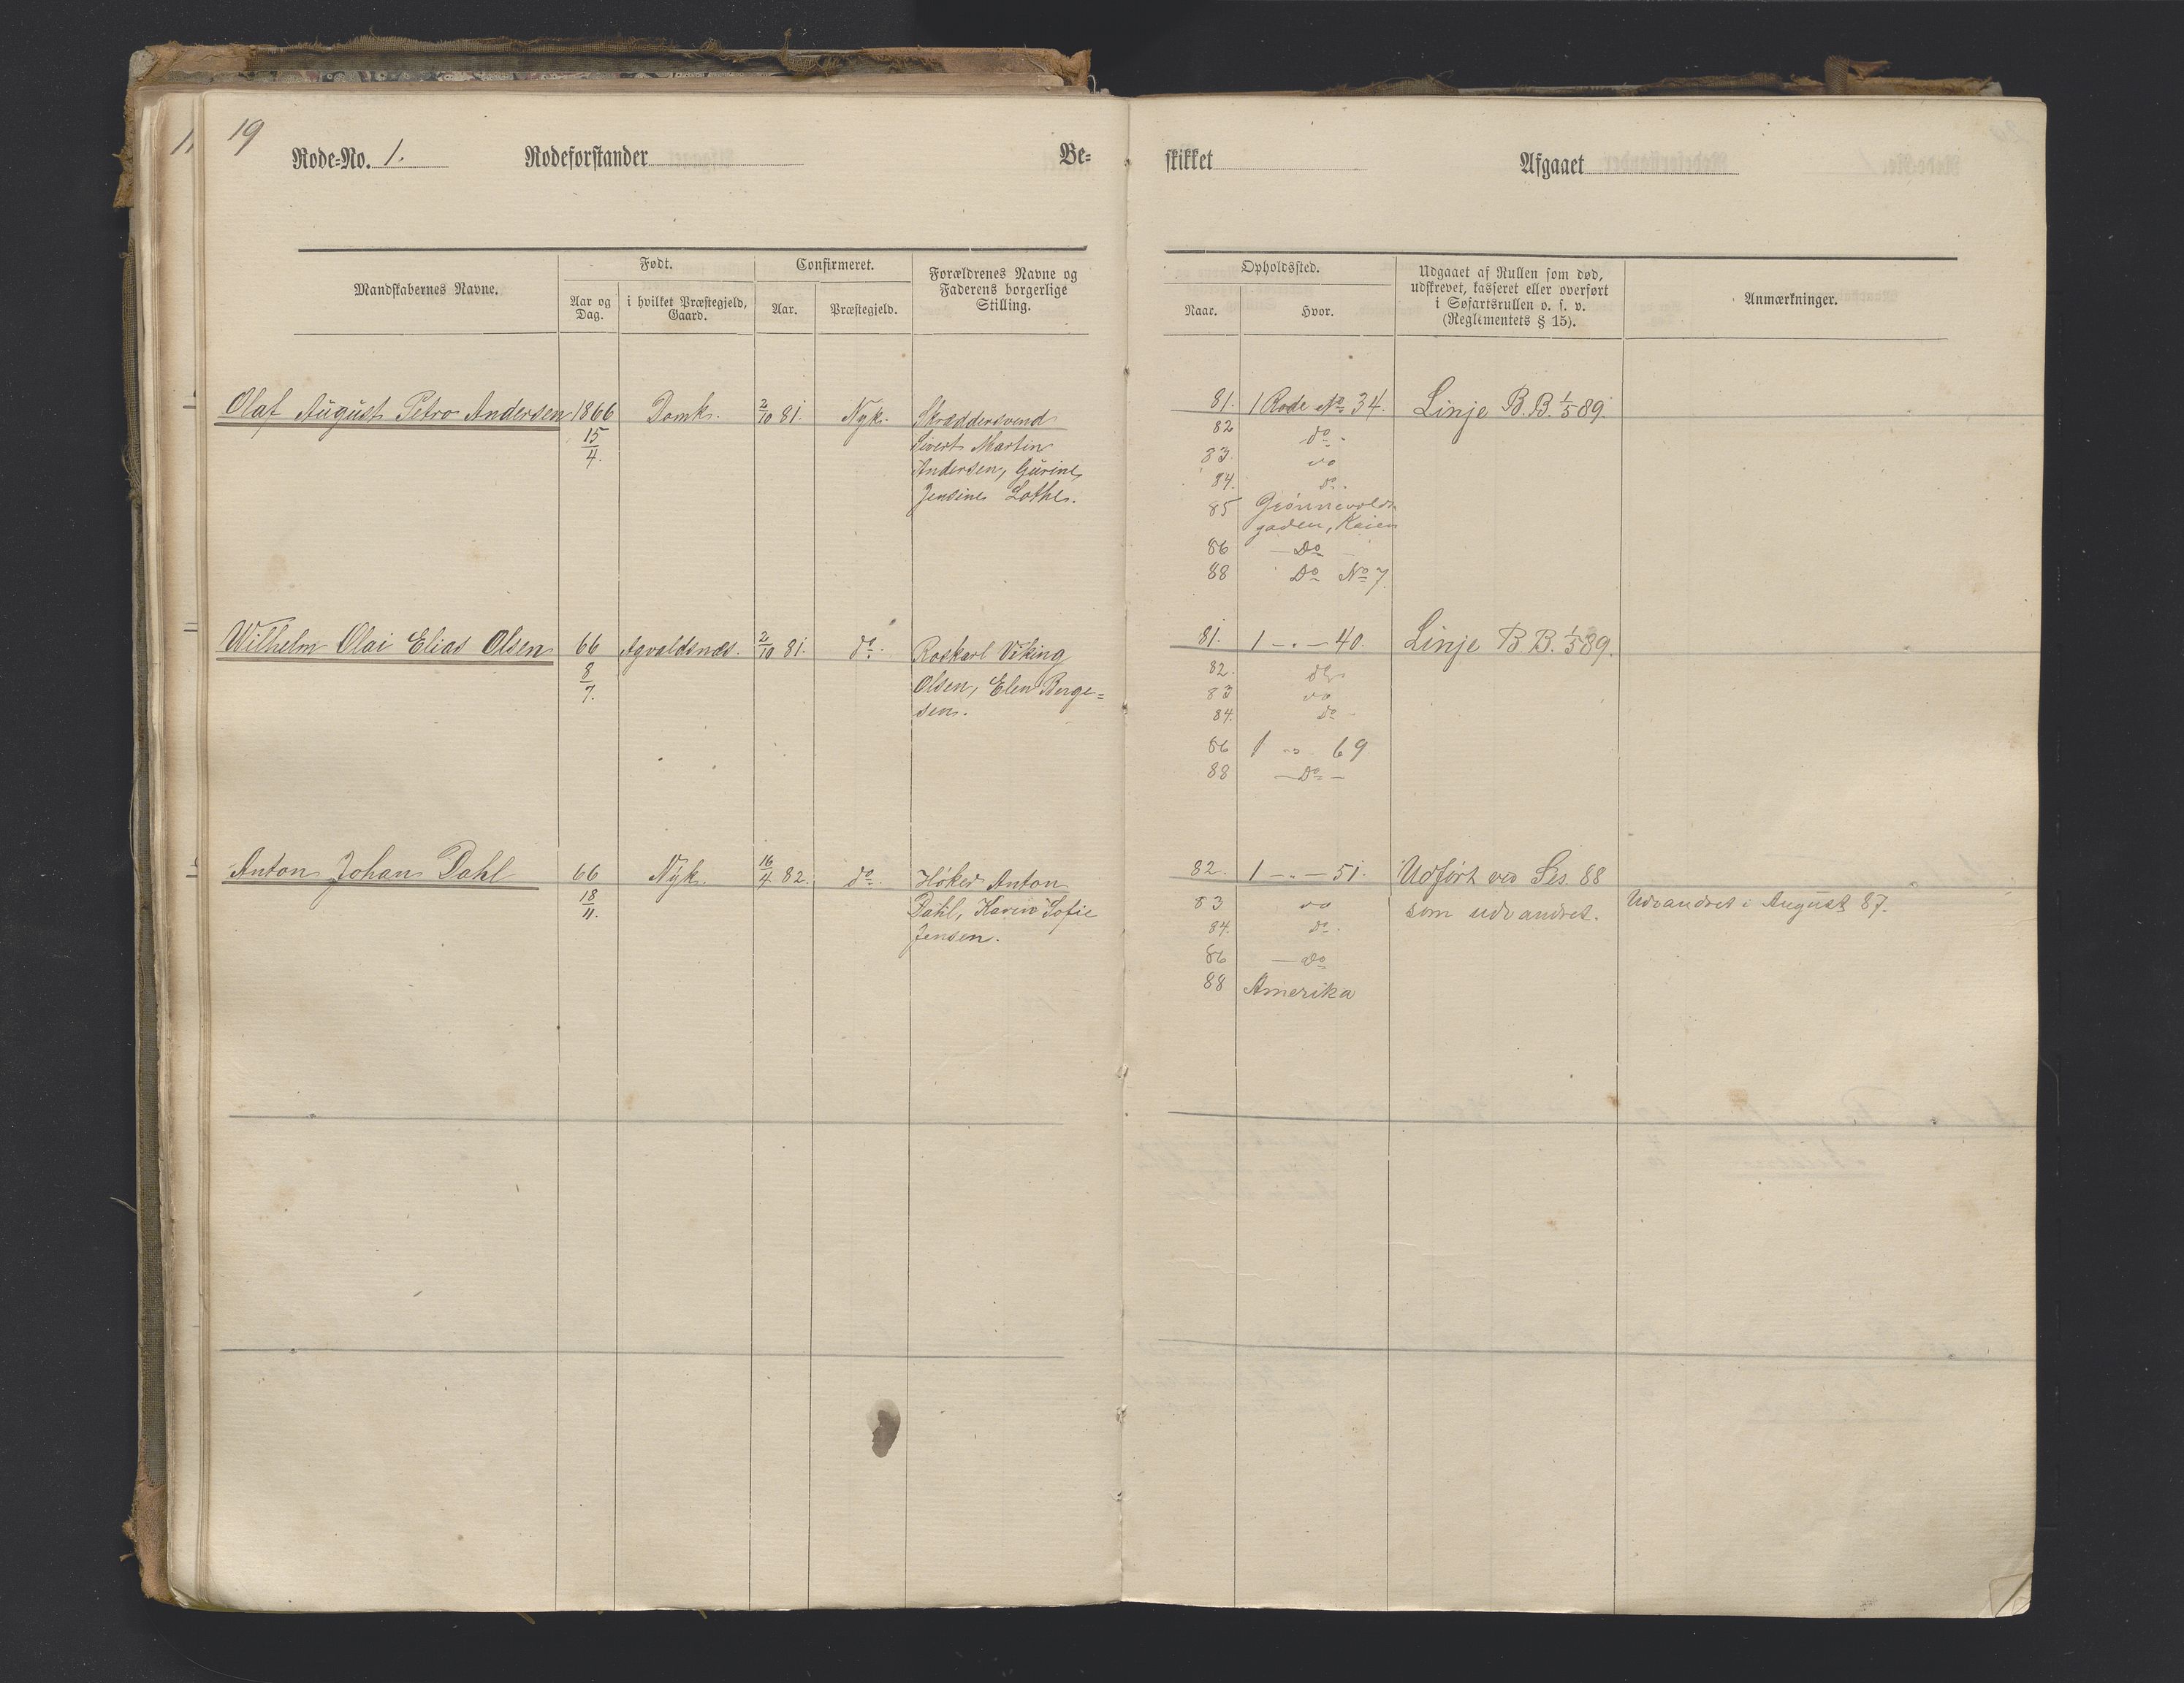 19
Rode-No. 1. Rodeforstander Be-
skikket Afgaaet
Mandskabernes Navne.
Født.
Aar og Dag.
i hvilket Præstegjeld, Gaard.
Confirmeret.
Aar.
Præstegjeld.
Forældrenes Navne og
Faderens borgerlige
Stilling.
Opholdssted.
Naar.
Hvor.
Udgaaet af Rullen som død,
udskrevet, kasseret eller overført
i Søfartsrullen o. s. v.
(Reglementets § 15).
Anmærkninger.
Olaf August Petro Andersen 1866 Domk. 2/10 81. Nyk. Skræddersvend
15/4. Sivert Martin
Andersen, Gurine
Jensine Lothe.
81. 1 Rode No 34. Linje B.B. 1/5 89.
82 do.
83. do
84. do.
85 Grønnevolds-
gaden, Keien
86 - Do -
88 Do No 7.
Wilhelm Olai Elias Olsen 66 Agvaldsnæs. 2/10 81. do. Roskarl Viking
8/7. Olsen, Elen Berge=
sen.
81. 1 - „ - 40. Linje B B. 1/5 89.
82. do
83 do
84. Do
86 1 „ 69
88 - Do -
Anton Johan Dahl 66 Nyk. 16/4 82. do. Høker Anton
18/11. Dahl, Karen Sofie
Jensen.
82. 1 - „ - 51. Udført ved Ses. 88
83 do som udvandret. Udvandret i August 87.
84. Do.
86 - do
88 Amerika